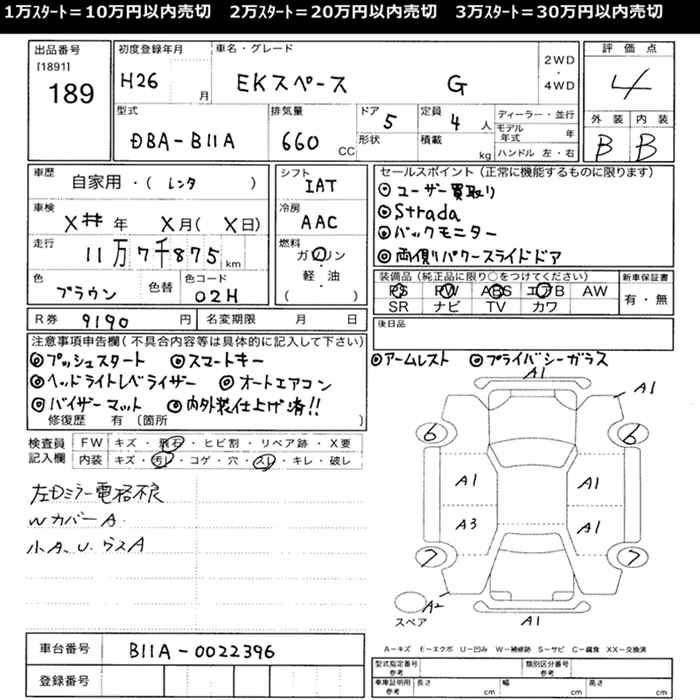 1万ｽﾀｰﾄ＝10万円以内売切　2万ｽﾀｰﾄ＝20万円以内売切　3万ｽﾀｰﾄ＝30万円以内売切
出品番号
[1891]
189
初度登録年月
H26 月
車名・グレード
EKスペース G
2WD
・
4WD
評価点
4
型式
DBA-B11A
排気量
660 CC
ドア
5
形状
定員
4 人
積載
kg
ディーラー・並行
モデル年式 年
ハンドル 左・右
外装 内装
B B
車歴
自家用・( レンタ )
車検
X 年 X 月( X 日)
走行
11万7千875 km
色
ブラウン
色替
色コード
02H
シフト
IAT
冷房
AAC
燃料
ガソリン
軽・油
( )
セールスポイント（正常に機能するものに限ります）
◎ユーザー買取り
◎Strada
◎バックモニター
◎両側パワースライドドア
装備品（純正品に限り○をつけてください）
PS PW ABS エアB AW
SR ナビ TV カワ
新車保証書
有・無
後日品
R券 9190 円
名変期限 月 日
注意事項申告欄（不具合内容等は具体的に記入して下さい）
◎プッシュスタート ◎スマートキー
◎ヘッドライトレベライザー ◎オートエアコン
◎バイザーマット ◎内外装仕上げ済!!
修復歴 有〔箇所 〕
◎アームレスト ◎プライバシーガラス
検査員記入欄
FW キズ・飛石・ヒビ割・リペア跡・X要
内装 キズ・汚レ・コゲ・穴・スレ・キレ・破レ
左Dミラー電格不良
WカバーA
小A、U、ラスA
A1
A1
6 6
A1 A1
A3 A1
7 7
A2
スペア
A1
A－キズ E－エクボ U－凹み W－補修跡 S－サビ C－腐食 XX－交換済
車台番号 B11A-0022396
登録番号
型式指定番号
参考
類別区分番号
参考
車庫証明用
参考
長さ cm 幅 cm 高さ cm